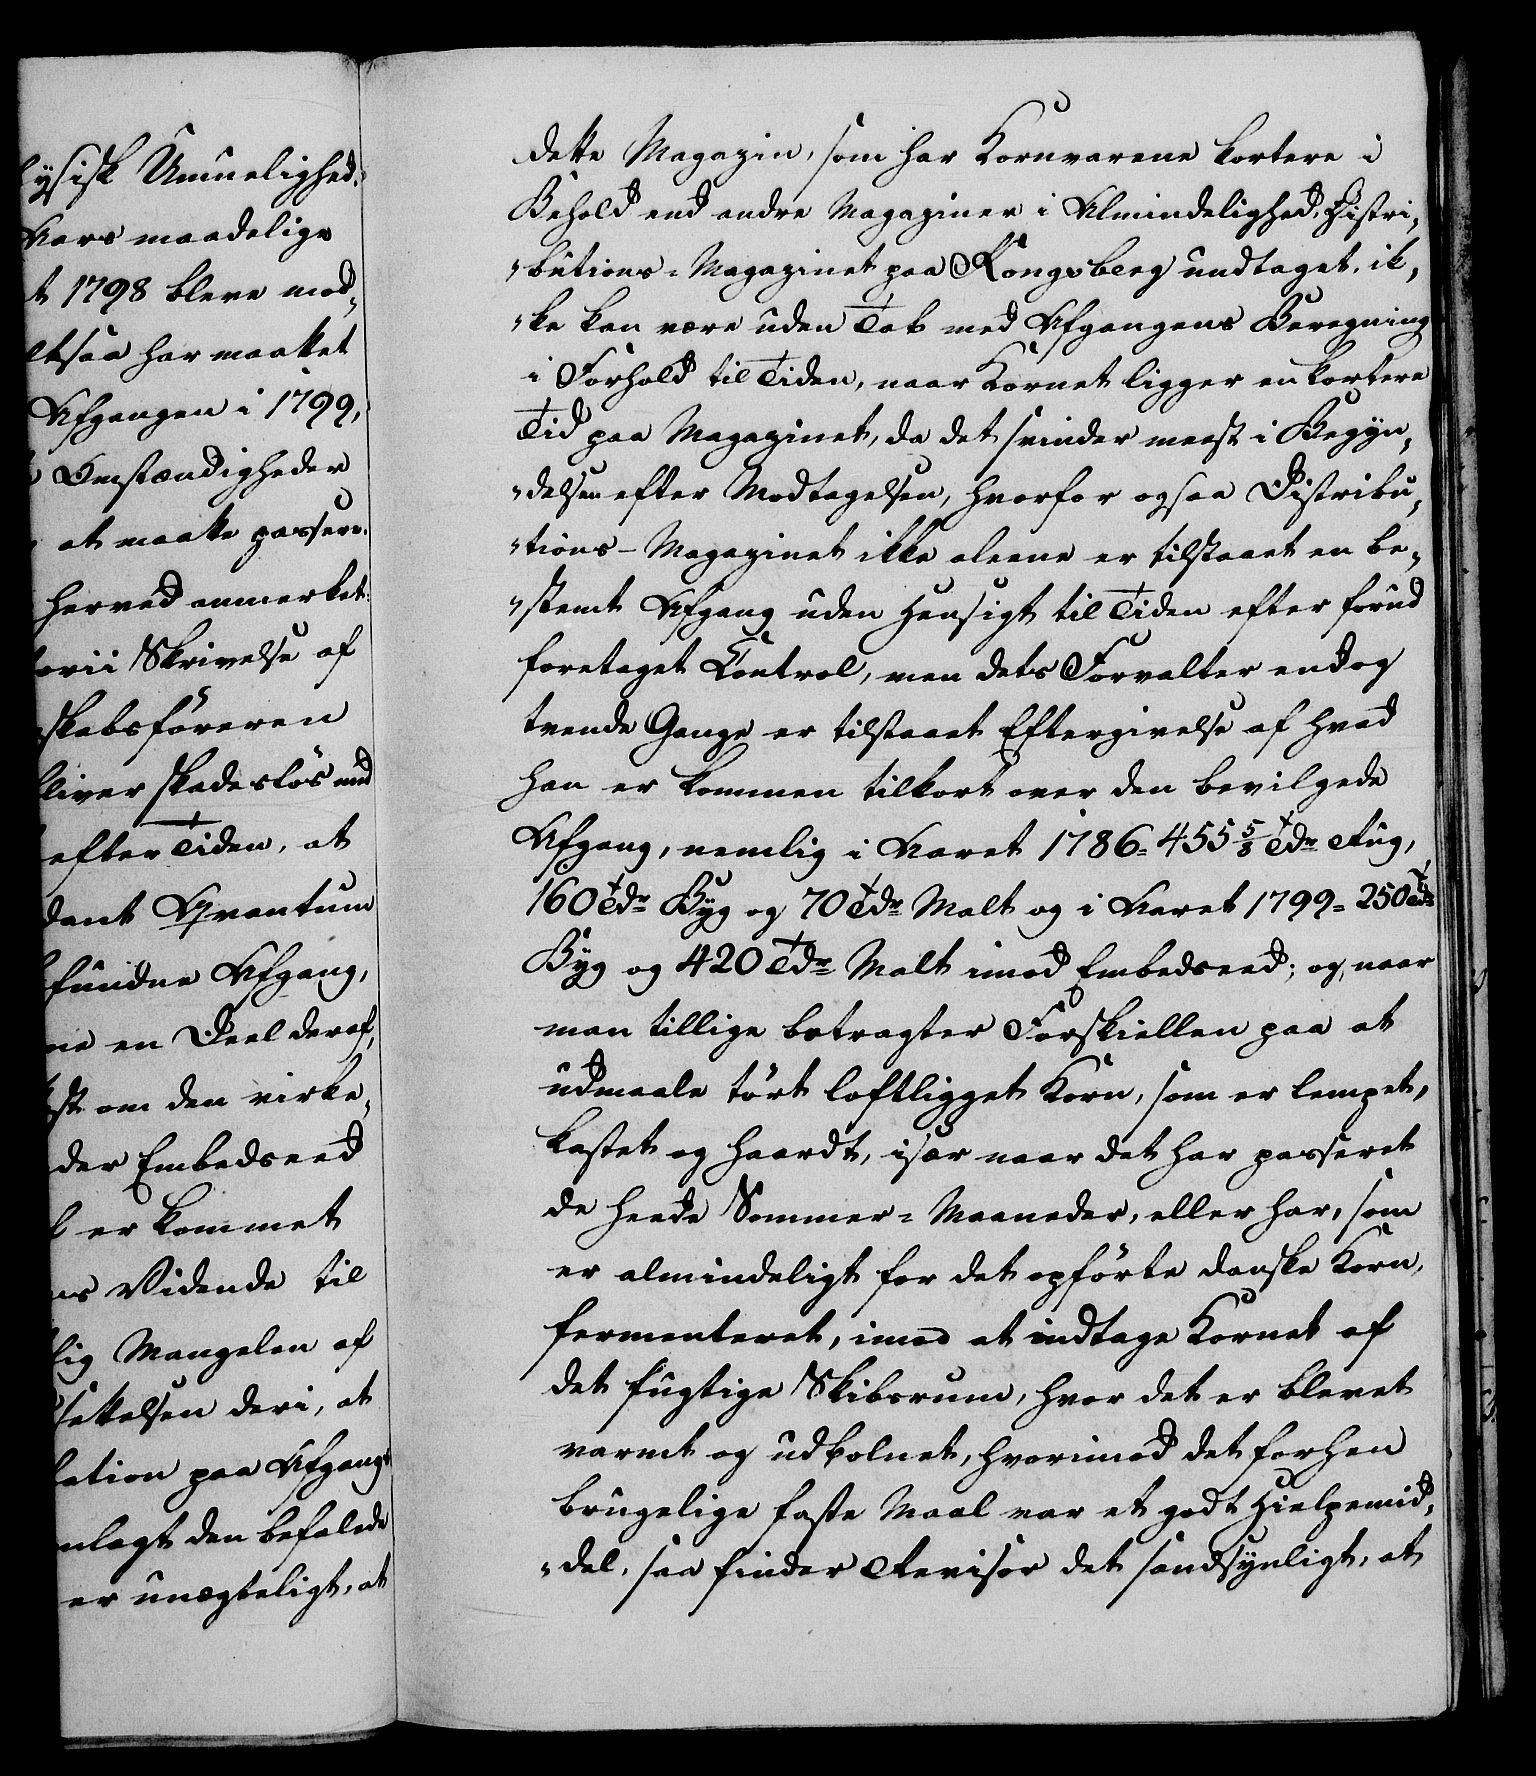 ysisk Umuelighed.
Aars maadelige
t 1798 bleve mod-
ltsaa har maattet
Afgangen i 1799,
Omstændigheder
at maatte passere.
herved anmerket
torii Skrivelse af
skabsføreren
bliver skadesløs ved
efter Tiden, at
dant Qvantum
fundne Afgang,
ne en Deel deraf,
st om den virke-
der Embedseed
er kommet
ns Vidende til
lig Mangelen af
settelsen deri, at
lation paa Afgangs
nlagt den befalede
er unægteligt, at
dette Magazin, som har Kornvarene kortere i
Behold end andre Magaziner i Almindelighed, Distri-
butions-Magazinet paa Kongsberg undtaget, ik-
ke kan være uden Tab med Afgangens Beregning
i Forhold til Tiden, naar Kornet ligger en kortere
Tid paa Magazinet, da det svinder meest i Begyn-
delsen efter Modtagelsen, hvorfor ogsaa Distribu-
tions-Magazinet ikke aleene er tilstaaet en be-
stemt Afgang uden Hensigt til Tiden efter forud
foretaget Control, men dets Forvalter endog
tvende Gange er tilstaaet Eftergivelse af hvad
han er kommen tilkort over den bevilgede
Afgang, nemlig i Aaret 1786 = 455 5/8 Tdr Rug,
160 Tdr Byg og 70 Tdr Malt og i Aaret 1799 = 250 Tdr
Byg og 420 Tdr Malt imod Embedseed; og, naar
man tillige betragter Forskiellen paa at
udmaale tørt loftligget Korn, som er lempet,
kastet og haardt, især naar det har passeret
de heede Sommer-Maaneder, eller har, som
er almindeligt for det opførte danske Korn,
fermenteret, imod at indtage Kornet af
det fugtige Skibsrum, hvor det er blevet
varmt og udbolnet, hvorimod det forhen
brugelige faste Maal var et godt Hielpemid-
del, saa finder Revisor det sandsynligt, at